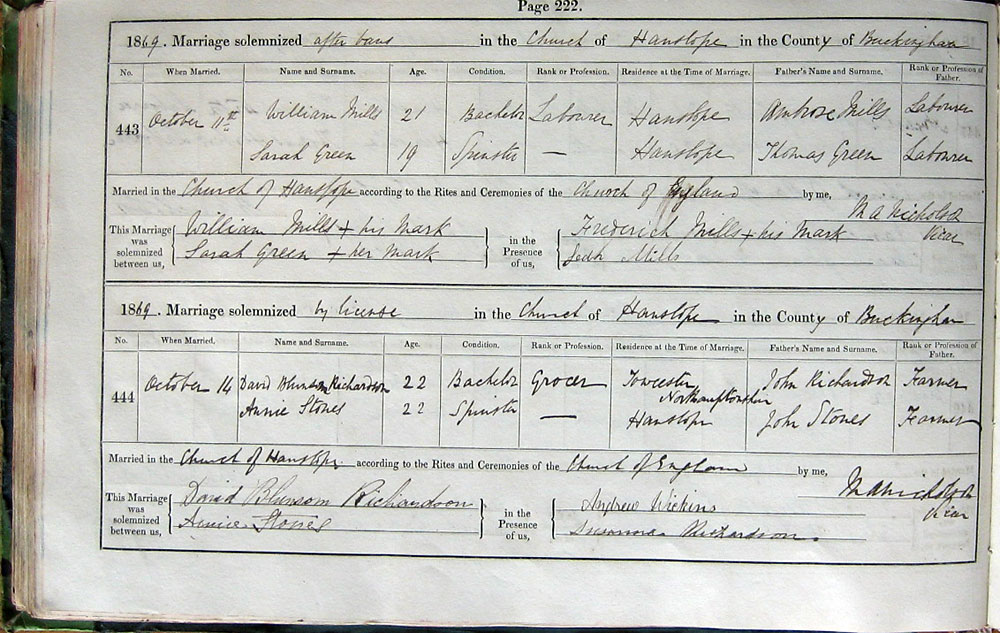 Page 222.
1869. Marriage solemnized after bans in the Church of Hanslope in the County of Buckingham
No. When Married. Name and Surname. Age. Condition. Rank or Profession. Residence at the Time of Marriage. Father's Name and Surname. Rank or Profession of Father.
443 October 11th William Mills 21 Bachelor Labourer Hanslope Ambrose Mills Labourer
Sarah Green 19 Spinster — Hanslope Thomas Green Labourer
Married in the Church of Hanslope according to the Rites and Ceremonies of the Church of England by me,
M A Nicholson
Vicar
This Marriage was solemnized between us, William Mills + his Mark in the Presence of us, Frederick Mills + his Mark
Sarah Green + her Mark Mills
1869. Marriage solemnized by license in the Church of Hanslope in the County of Buckingham
No. When Married. Name and Surname. Age. Condition. Rank or Profession. Residence at the Time of Marriage. Father's Name and Surname. Rank or Profession of Father.
444 October 14 David Blunsom Richardson 22 Bachelor Grocer Towcester Northamptonshire John Richardson Farmer
Annie Stones 22 Spinster — Hanslope John Stones Farmer
Married in the Church of Hanslope according to the Rites and Ceremonies of the Church of England by me,
M A Nicholson
Vicar
This Marriage was solemnized between us, David Blunsom Richardson in the Presence of us, Andrew Wickins
Annie Stones Richardson